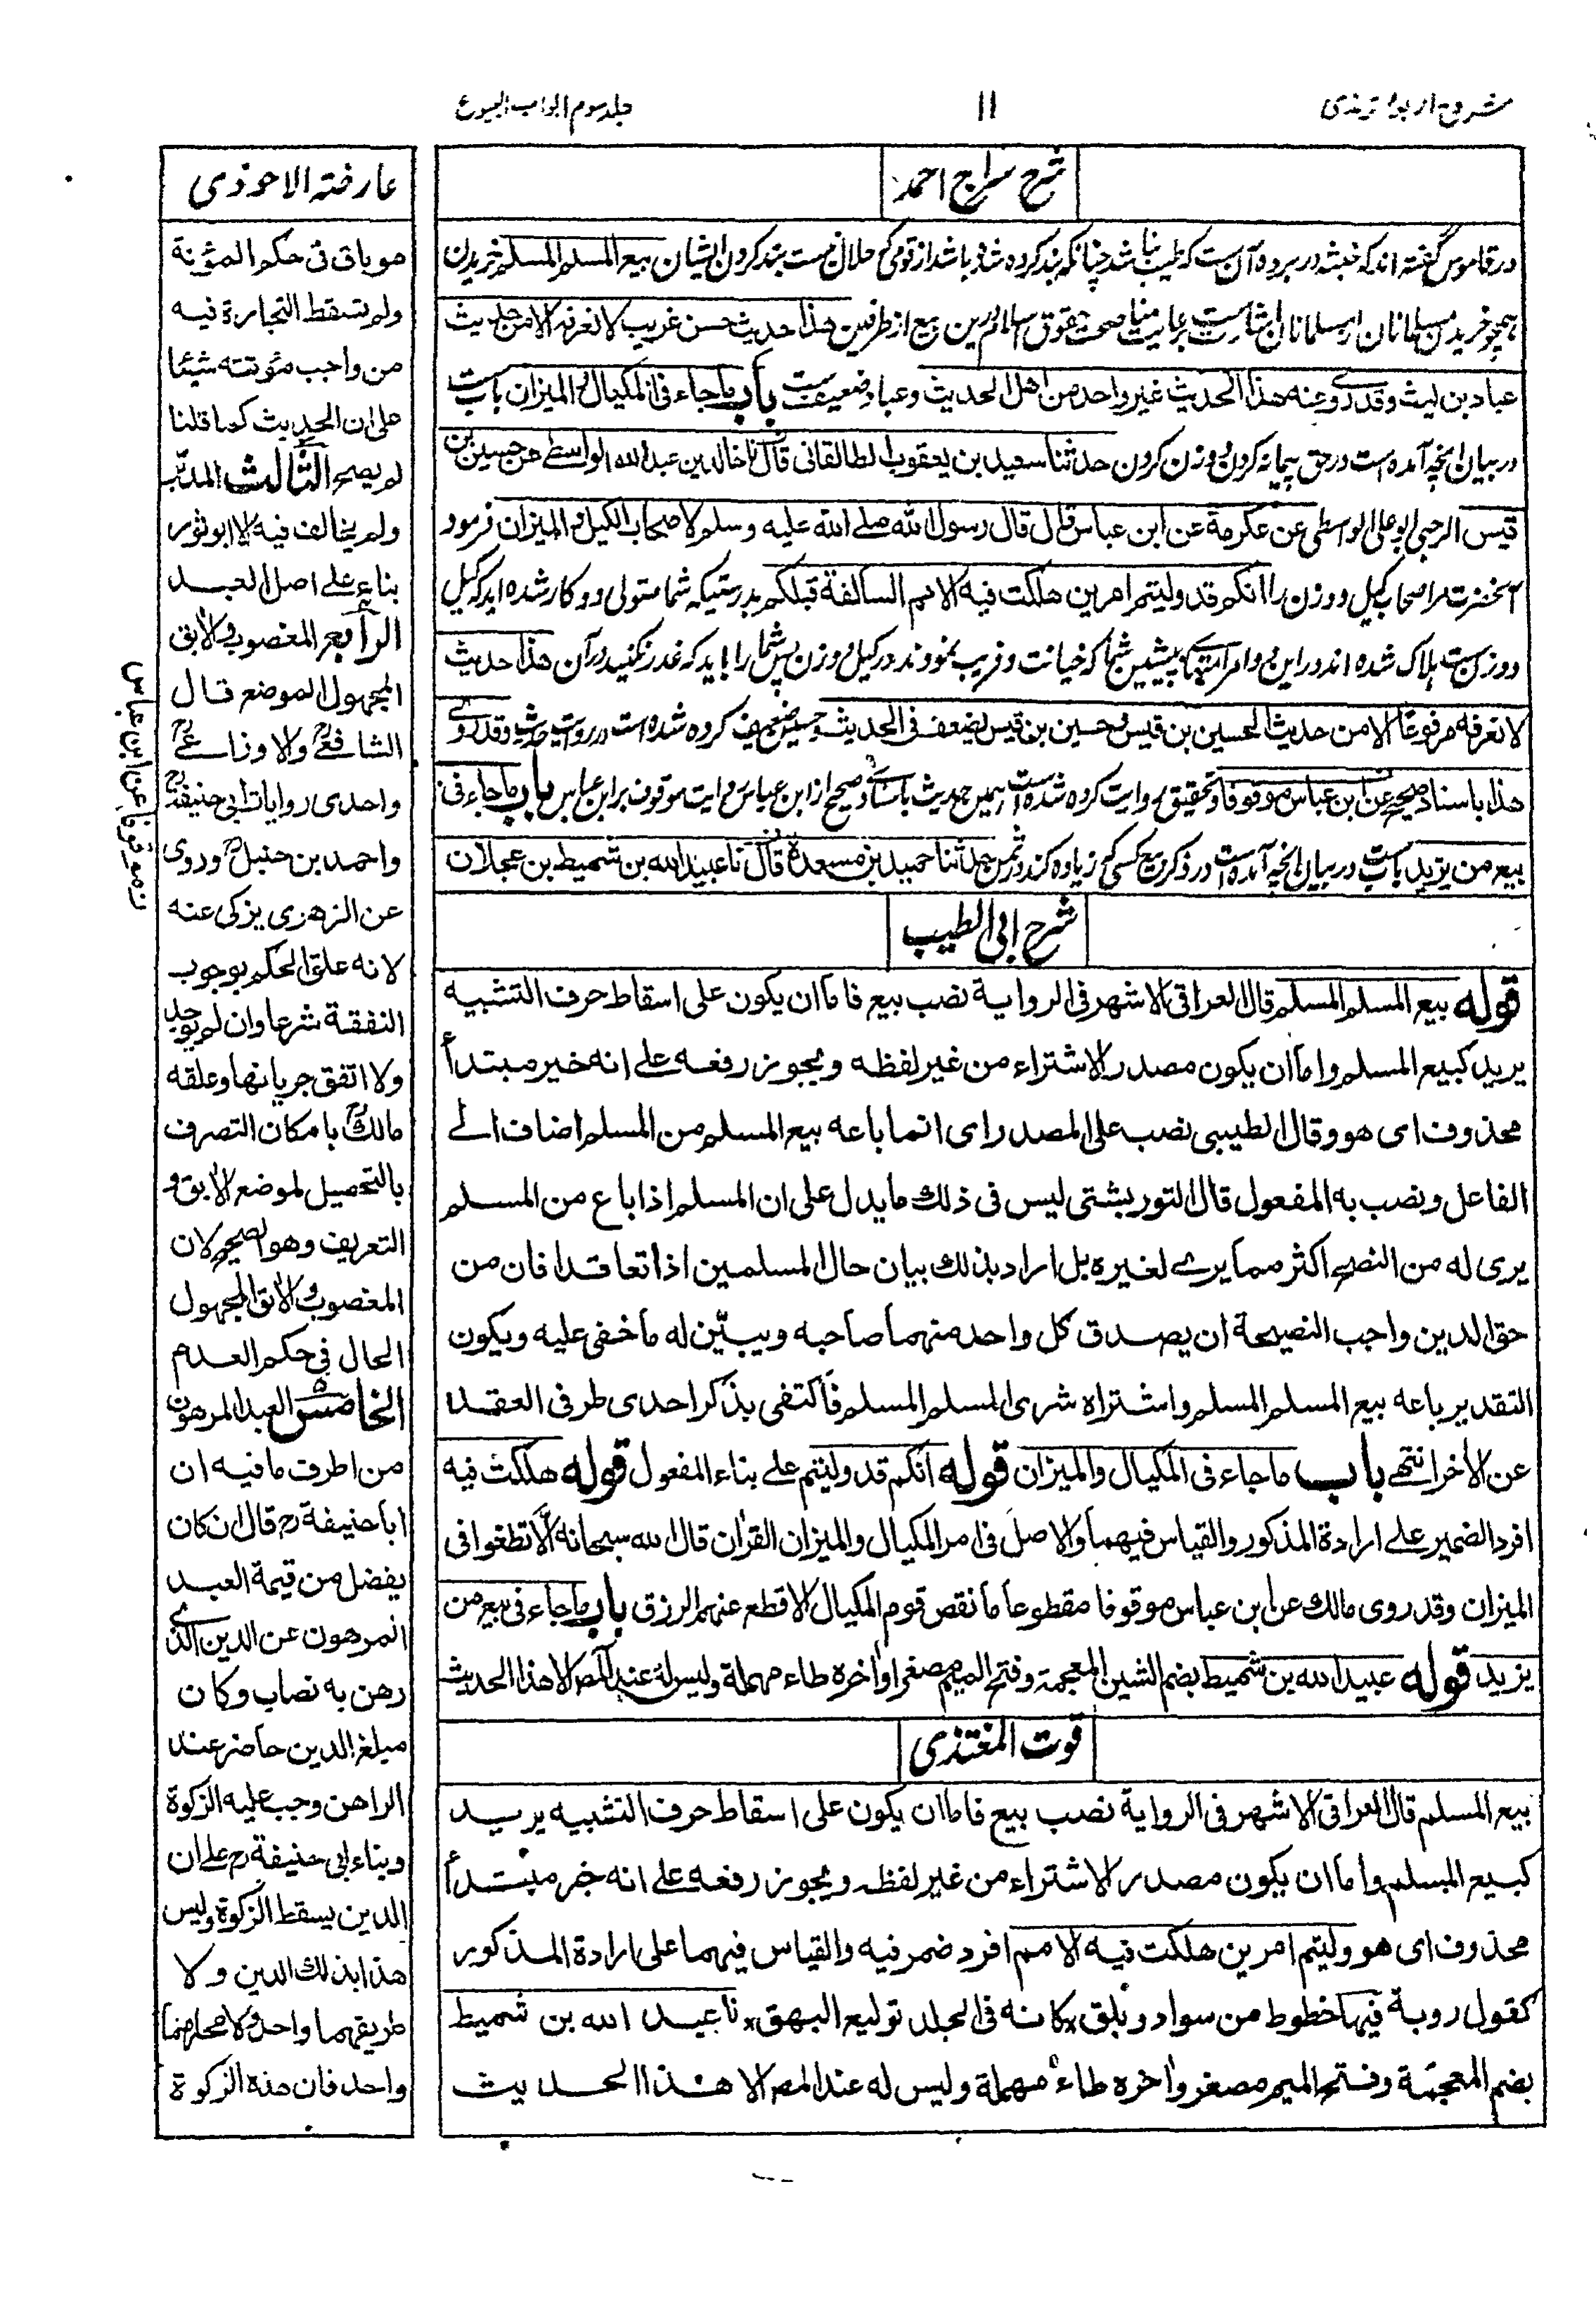 شروح اربعہ ترمذی
۱۱
جلد سوم ابواب البیوع
شرح سراج احمد
در قاموس گفته اند که خبثه در برده آن ست که طیب نباشد چنانکه بند کرده شده باشد از قومی که حلال نیست بند کردن ایشان بیع المسلم المسلم خریدن
همچو خریدن مسلمانان از مسلمانان برعایت مناصحت حقوق اسلام درین بیع از طرفین هذا حدیث حسن غریب لا نعرفه الا من حدیث
عباد بن لیث وقد روی عنه هذا الحدیث غیر واحد من اهل الحدیث وعباد ضعیف ست باب ما جاء فی المکیال والمیزان باب ست
در بیان انچه آمده است در حق پیمانه کردن و وزن کردن حدثنا سعید بن یعقوب الطالقانی قال نا خالد بن عبد الله الواسطی عن حسین بن
قیس الرحبی ابو علی الواسطی عن عکرمة عن ابن عباس قال قال رسول الله صلے الله علیه وسلم لاصحاب الکیل والمیزان فرمود
آنحضرت مر اصحاب کیل و وزن را انکم قد ولیتم امرین هلکت فیه الامم السالفة قبلکم بدرستیکه شما متولی دو کار شده اید که کیل
و وزن ست هلاک شده اند در این دو امر امتهای پیشین شما که خیانت و فریب نمودند در کیل و وزن پس شما را باید که غدر نکنید در آن هذا حدیث
لا نعرفه مرفوعا الا من حدیث الحسین بن قیس وحسین بن قیس یضعف فی الحدیث وحسین ضعیف کرده شده است در روایت حدیث وقد روی
هذا باسناد صحیح عن ابن عباس موقوفا وتحقیق روایت کرده شده است همین حدیث باسناد صحیح از ابن عباس روایت موقوف بر ابن عباس باب ما جاء فی
بیع من یزید باب ست در بیان انچه آمده است در ذکر بیع کسی که زیاده کند در ثمن حدثنا حمید بن مسعدة قال نا عبید الله بن شمیط بن عجلان
شرح ابی الطیب
قوله بیع المسلم المسلم قال العراقی الاشهر فی الروایة نصب بیع فاما ان یکون علی اسقاط حرف التشبیه
یرید کبیع المسلم واما ان یکون مصدر الاشتراء من غیر لفظه ویجوز رفعه علے انه خبر مبتدأ
محذوف ای هو وقال الطیبی نصب علی المصدر ای انما باعه بیع المسلم من المسلم اضاف الے
الفاعل ونصب به المفعول قال التوربشتی لیس فی ذلك ما یدل علی ان المسلم اذا باع من المسلم
یری له من النصح اکثر مما یرے لغیره بل اراد بذلك بیان حال المسلمین اذا تعاقدا فان من
حق الدین واجب النصیحة ان یصدق کل واحد منهما صاحبه ویبیّن له ما خفی علیه ویکون
التقدیر باعه بیع المسلم المسلم واشتراه شری المسلم المسلم فاکتفی بذکر احدی طرفی العقد
عن الأخر انتهے باب ما جاء فی المکیال والمیزان قوله انکم قد ولیتم علے بناء المفعول قوله هلکت فیه
افرد الضمیر علے ارادة المذکور والقیاس فیهما والاصل فی امر المکیال والمیزان القرأن قال الله سبحانه الّا تطغوا فی
المیزان وقد روی مالك عن ابن عباس موقوفا مقطوعا ما نقص قوم المکیال الا قطع عنهم الرزق باب ما جاء فی بیع من
یزید قوله عبید الله بن شمیط بضم الشین المعجمة وفتح المیم مصغرا واخره طاء مهملة ولیس له عند المص الا هذا الحدیث
قوت المغتذی
بیع المسلم قال العراقی الاشهر فی الروایة نصب بیع فاما ان یکون علی اسقاط حرف التشبیه یرید
کبیع المسلم واما ان یکون مصدر الاشتراء من غیر لفظه ویجوز رفعه علے انه خبر مبتدأ
محذوف ای هو ولیتم امرین هلکت فیه الامم افرد ضمر فیه والقیاس فیهما علی ارادة المذکور
کقول روبة فیها خطوط من سواد وبلق × کانه فی الجلد تولیع البهق × نا عبید الله بن شمیط
بضم المعجمة وفتح المیم مصغر واخره طاء مهملة ولیس له عند المص الا هذا الحدیث
عارضة الاحوذی
هو باق فی حکم المؤنة
ولم تسقط التجارة فیه
من واجب مؤنته شیئا
علی ان الحدیث کما قلنا
لم یصح الثالث المدبّر
ولم یخالف فیه الا ابو ثور
بناء علی اصل العبد
الرابع المغصوب والآبق
المجهول الموضع قال
الشافعی والاوزاعے
واحدی روایات ابی حنیفة
واحمد بن حنبل وروی
عن الزهری یزکی عنه
لانه علق الحکم بوجوب
النفقة شرعا وان لم یوجد
ولا اتفق جریانها وعلقه
مالك بامکان التصرف
بالتحمیل لموضع الآبق و
التعریف وهو الصحیح لان
المغصوب والآبق المجهول
الحال فی حکم العدم
الخامس العبد المرهون
من اطرف ما فیه ان
ابا حنیفة رح قال ان کان
یفضل من قیمة العبد
المرهون عن الدین الذی
رهن به نصاب وکان
مبلغ الدین حاضر عند
الراهن وجب علیه الزکوة
وبناء ابی حنیفة رح علے ان
الدین یسقط الزکوة ولیس
هذا بذلك الدین ولا
طریقهما واحد ولا محلهما
واحد فان هذه الزکوة
عن ابن عباس